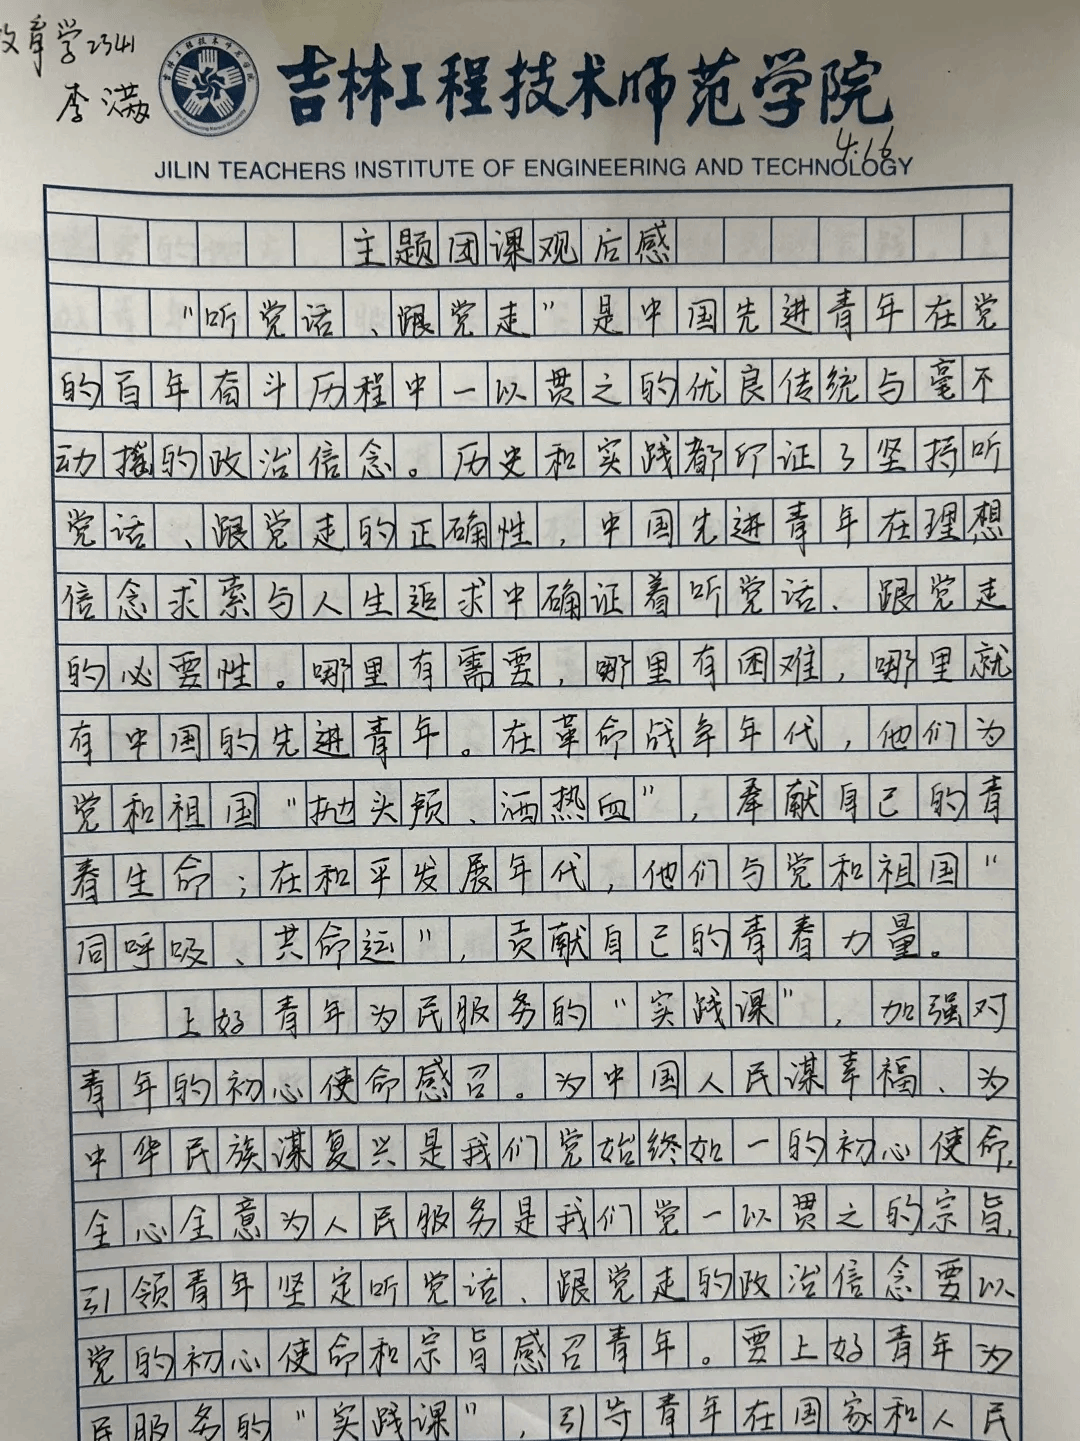 教育学2341
李满
吉林工程技术师范学院
4.16
JILIN TEACHERS INSTITUTE OF ENGINEERING AND TECHNOLOGY
主题团课观后感
“听党话、跟党走”是中国先进青年在党
的百年奋斗历程中一以贯之的优良传统与毫不
动摇的政治信念。历史和实践都印证了坚持听
党话、跟党走的正确性，中国先进青年在理想
信念求索与人生追求中确证着听党话、跟党走
的必要性。哪里有需要，哪里有困难，哪里就
有中国的先进青年。在革命战争年代，他们为
党和祖国“抛头颅、洒热血”，奉献自己的青
春生命；在和平发展年代，他们与党和祖国“
同呼吸、共命运”，贡献自己的青春力量。
上好青年为民服务的“实践课”，加强对
青年的初心使命感召。为中国人民谋幸福、为
中华民族谋复兴是我们党始终如一的初心使命，
全心全意为人民服务是我们党一以贯之的宗旨，
引领青年坚定听党话、跟党走的政治信念要以
党的初心使命和宗旨感召青年。要上好青年为
民服务的“实践课”，引导青年在国家和人民